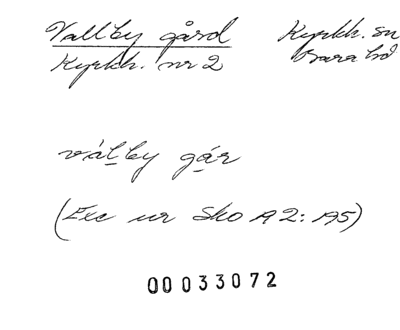 Vallby gård Kyrkh. sn
Kyrkh. nr 2 Bara hd
válby gár
(Exc ur Sko A2: 195)
00033072